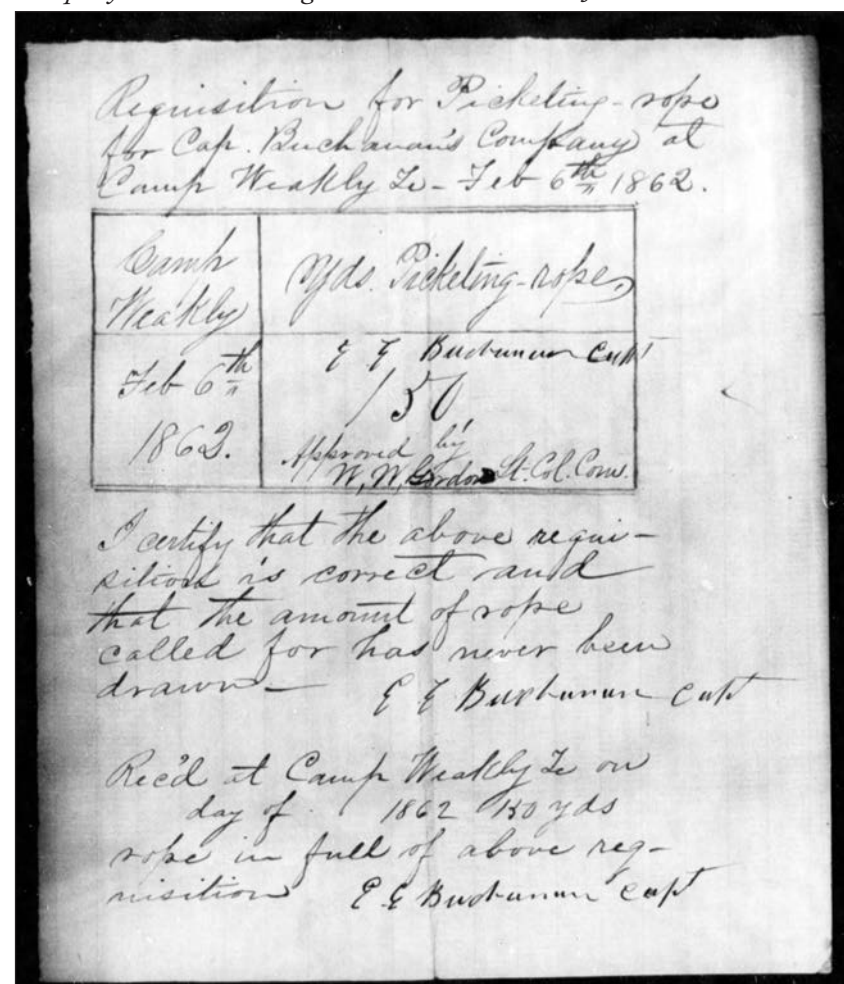 Requisition for Picketing-rope
for Cap. Buchanan's Company at
Camp Weakly Te - Feb 6th 1862.
Camp
Weakly
Yds. Picketing-rope,
Feb 6th
1862.
E E Buchanan Capt
150
Approved by
W, W, Gordon Lt. Col. Com.
I certify that the above requi-
sition is correct and
that the amount of rope
called for has never been
drawn — E E Buchanan Capt
Rec'd at Camp Weakly Te on
day of 1862 150 yds
rope in full of above req-
uisition E E Buchanan Capt